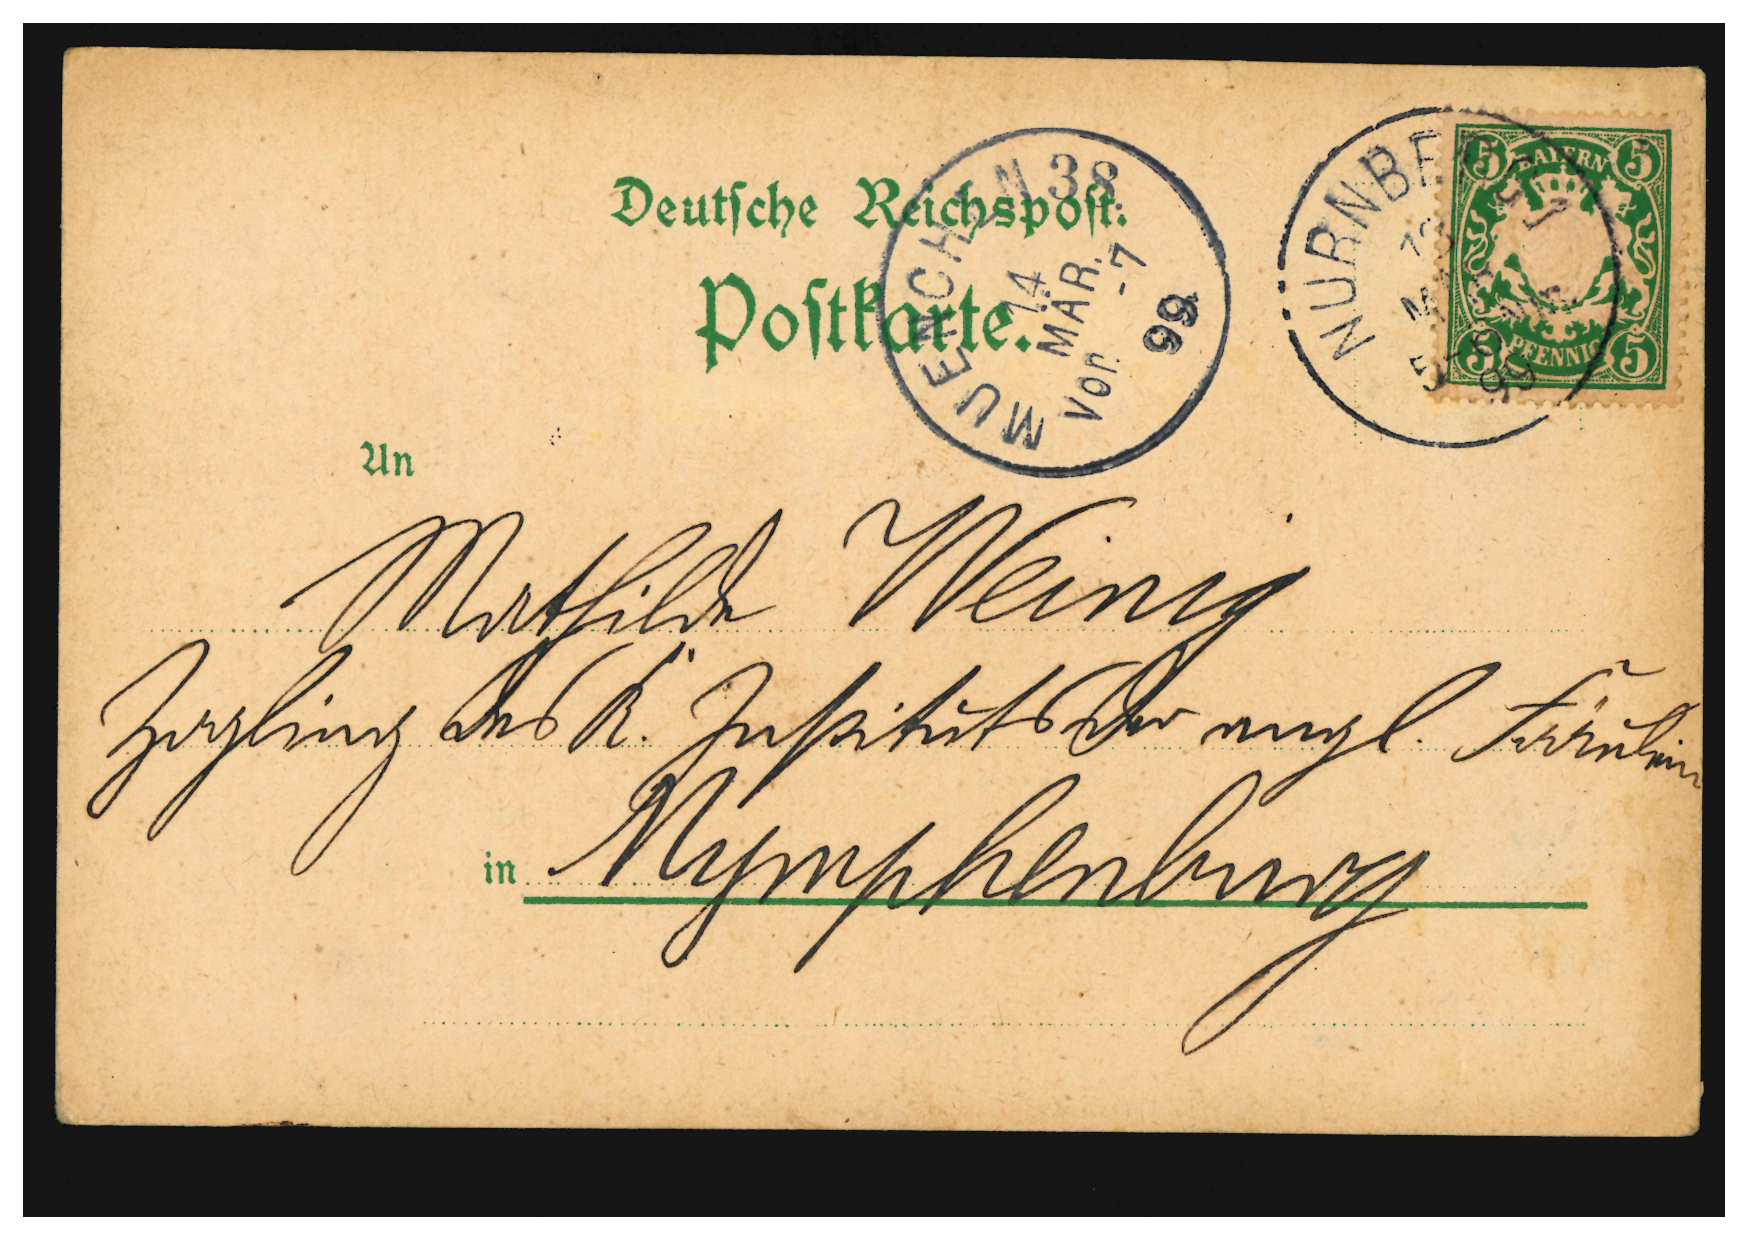 Deutsche Reichspost.
Postkarte.
MUENCHEN 38
14
MÄR.
Vor. -7
99
NÜRNBERG
13
5-6
99
5 BAYERN 5
5 PFENNIG 5
An
Mathilde Weinig
Zögling des K. Instituts der engl. Fräulein
in Nymphenburg